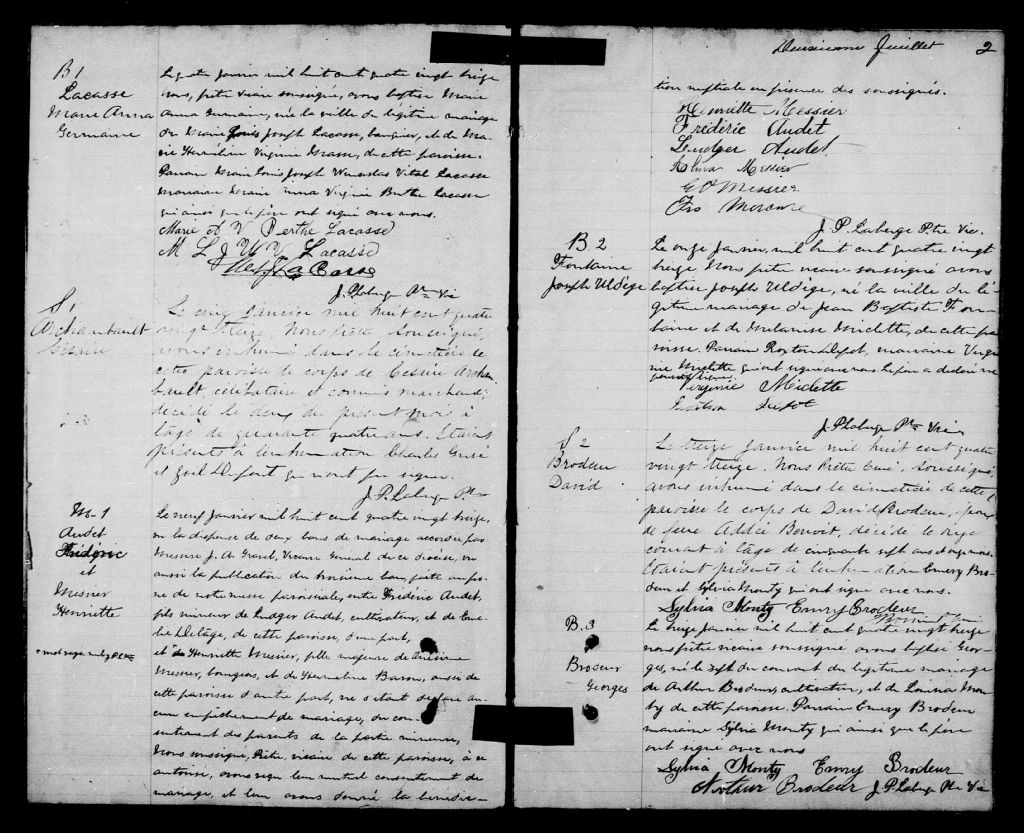 B 1
Lacasse
Marie Anna
Germaine
Le quatre janvier mil huit cent quatre vingt treize
nous, prêtre vicaire soussigné, avons baptisé Marie
Anna Germaine, née la veille du légitime mariage
de Marie Louis Joseph Lacasse, banquier, et de Ma-
rie Herméline Virginie Masse, de cette paroisse.
Parrain Marie Louis Joseph Wenceslas Vital Lacasse
marraine Marie Anna Virginie Berthe Lacasse
qui ainsi que le père ont signé avec nous.
Marie A V Berthe Lacasse
M L J W V Lacasse
J. P. Laberge Ptre Vic
S 1
Archambault
Césaire
Le cinq janvier mil huit cent quatre
vingt treize, Nous Prêtre soussigné,
avons inhumé dans le cimetière de
cette paroisse le corps de Césaire Archam
bault, célibataire et commis marchand;
décédé le deux du présent mois à
l'âge de quarante quatre ans. Etaient
présents à l'inhumation Charles
et qui n'ont pu signer.
J. P. Laberge Ptre
M-1
Audet
Frédéric
et
Messier
Henriette
Le neuf janvier mil huit cent quatre vingt treize,
vu la dispense de deux bans de mariage accordée par
Messire J. A. Gravel, Vicaire Général de ce diocèse, vu
aussi la publication du troisième ban, faite au prô-
ne de notre messe paroissiale, entre Frédéric Audet,
fils mineur de Ludger Audet, cultivateur, et de
lie Delâge, de cette paroisse, d'une part,
et de Henriette Messier, fille majeure de
Messier, bourgeois, et de Herméline Baron, aussi de
cette paroisse d'autre part, ne s'étant déclaré au-
cun empêchement de mariage, du con-
sentement des parents de la partie mineure,
Nous soussigné, Prêtre, vicaire de cette paroisse, à ce
autorisé, avons reçu leur mutuel consentement de
mariage, et leur avons donné la bénédic-
Deuxième Feuillet 2
tion nuptiale en présence des soussignés.
Henriette Messier
Frédéric Audet
Ludger Audet
Messier
Messier
Mercure
J. P. Laberge Ptre Vic.
B 2
Fontaine
Joseph Uldège
Le onze janvier, mil huit cent quatre vingt
treize Nous prêtre vicaire soussigné avons
baptisé Joseph Uldège, né la veille du lé-
gitime mariage de Jean Baptiste Fon-
taine et de Mélanise Miclette, de cette pa-
roisse. Parrain Royton Depot, marraine Virgi
nie Miclette qui ont signé avec nous le père a déclaré ne
pouvoir signer
Virginie Miclette
Depot
J. P. Laberge Ptre Vic
S 2
Brodeur
David
Le treize janvier mil huit cent quatre
vingt treize, Nous Prêtre Curé, soussigné
avons inhumé dans le cimetière de cette
paroisse le corps de David Brodeur, époux
de feue Addée Benoit, décédé le onze
courant à l'âge de cinquante sept ans et onze mois.
Etaient présents à l'inhumation Emery Bro-
deur et Sylvia Monty qui ont signé avec nous.
Sylvia Monty Emry Brodeur
B. 3
Brodeur
Georges
Le treize janvier mil huit cent quatre vingt treize
nous prêtre vicaire soussigné avons baptisé Geor-
ges, né le sept du courant du légitime mariage
de Arthur Brodeur, cultivateur, et de Louisa Mon-
ty de cette paroisse. Parrain Emery Brodeur
marraine Sylvia Monty qui ainsi que le père
ont signé avec nous
Sylvia Monty Emry Brodeur
Arthur Brodeur J P Laberge Ptre Vic